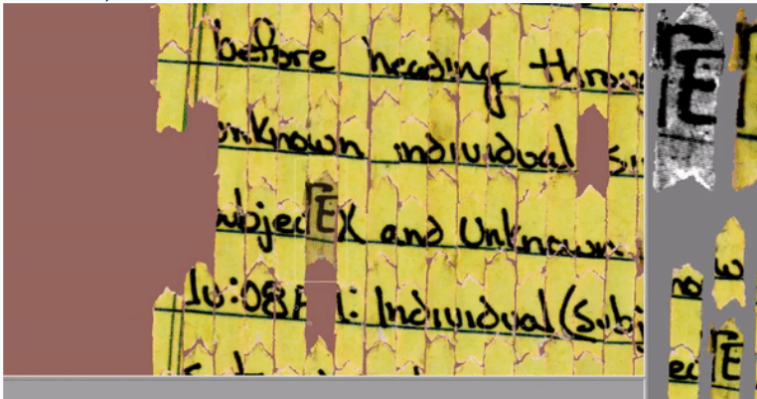 before heading throu
unknown individual su
ubjec E X and Unknown
10:08P 1: Individual (Subj
E
now
ec E